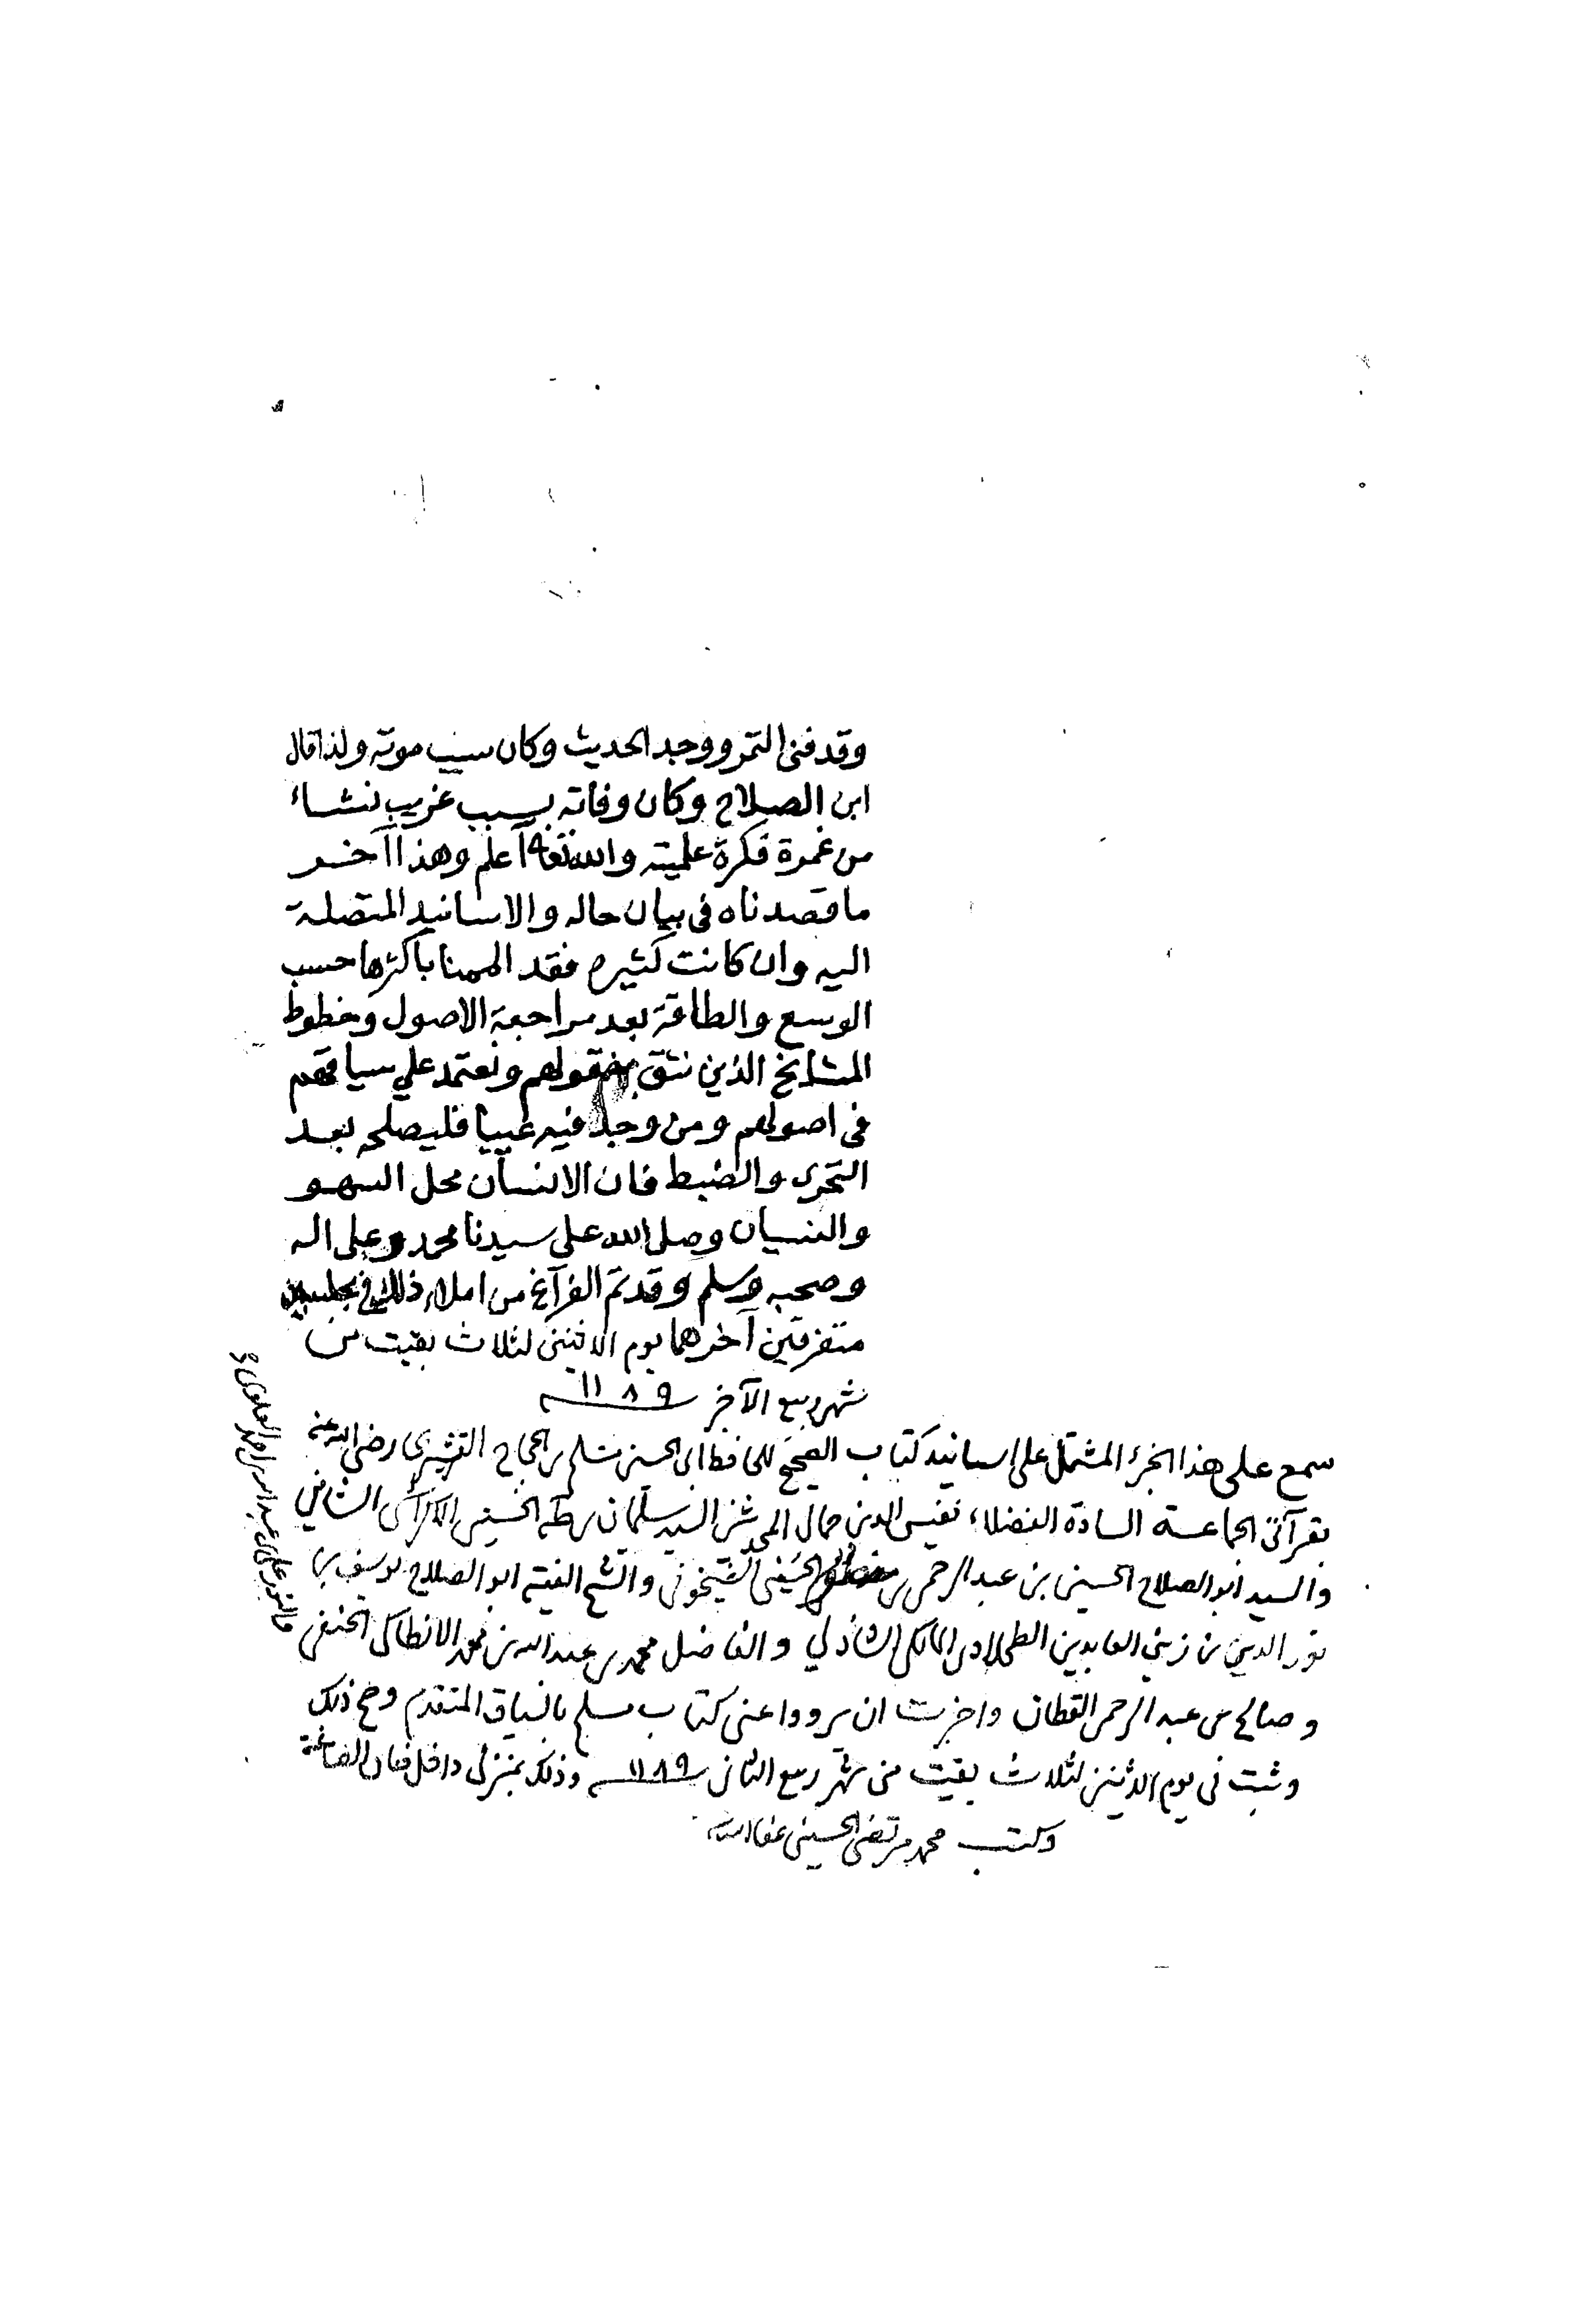 وقد فنى التمر ووجد الحديث وكان سبب موته ولذا قال
ابن الصلاح وكان وفاته بسبب غريب نشاء
من غمرة فكرة علمية والله تعا اعلم وهذا آخر
ما قصدناه فى بيان حاله والاسانيد المتصلة
اليه وان كانت كثيره فقد الممنا باكثرها حسب
الوسع والطاقة بعد مراجعة الاصول وخطوط
المشايخ الذين نثق بنقولهم ونعتمد علي سياقهم
فى اصولهم ومن وجد فيه عيبا فليصلحه بعد
التحرى والضبط فان الانسان محل السهو
والنسيان وصلى الله على سيدنا محمد وعلى اله
وصحبه وسلم وقد تم الفراغ من املاء ذلك فى مجلسين
متفرقين آخرهما يوم الاثنين لثلاث بقيت من
شهر ربيع الآخر ١١٨٩
سمع على هذا الجزء المشتمل على اسانيد كتاب الصحيح للحافظ ابى الحسين مسلم بن الحجاج القشيرى رضى الله عنه
بقرآتى الجماعة السادة الفضلاء نفيس الدين جمال المحدثين السيد سلمان بن طه الحسينى الاكراشى الشافعي
والسيد ابو الصلاح الحسينى بن عبد الرحمن بن الحسينى الشيخونى والشيخ الفقيه ابو الصلاح يوسف بن
نور الدين بن زين العابدين الطحلاوى المالكى الشاذلي والفاضل محمد بن عبد الله بن محمد الانطاكى الحنفى
وصالح بن عبد الرحمن القطان واجزت ان يرووا عنى كتاب مسلم بالسياق المتقدم وصح ذلك
وثبت فى يوم الاثنين لثلاث بقيت من شهر ربيع الثانى ١١٨٩ وذلك بمنزلى داخل الصاغة
وكتب محمد مرتضى الحسينى عفا الله
والنور على بن عبد الله بن احمد العلوى